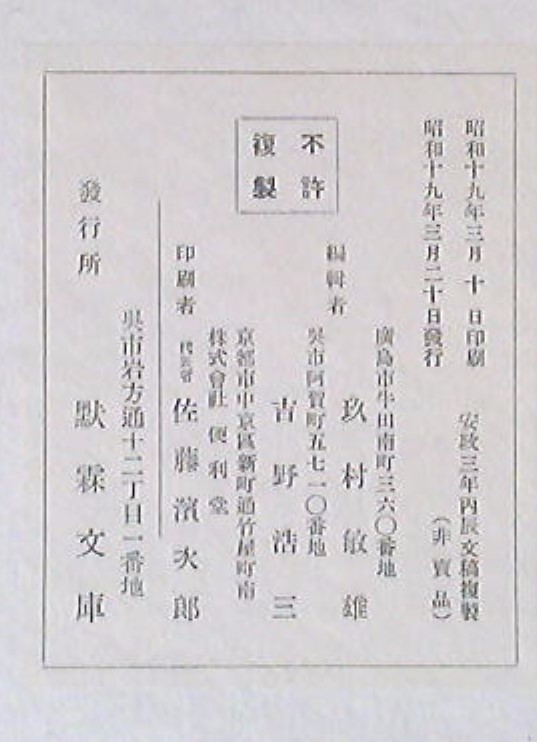 昭和十九年三月 十 日印刷
昭和十九年三月二十日發行
安政三年丙辰文稿複製
（非賣品）
不許
複製
編輯者
廣島市牛田南町三六〇番地
玖村敏雄
吳市阿賀町五七一〇番地
吉野浩三
印刷者
京都市中京區新町通竹屋町南
株式會社 便利堂
代表者 佐藤濱次郎
發行所
吳市岩方通十二丁目一番地
默霖文庫